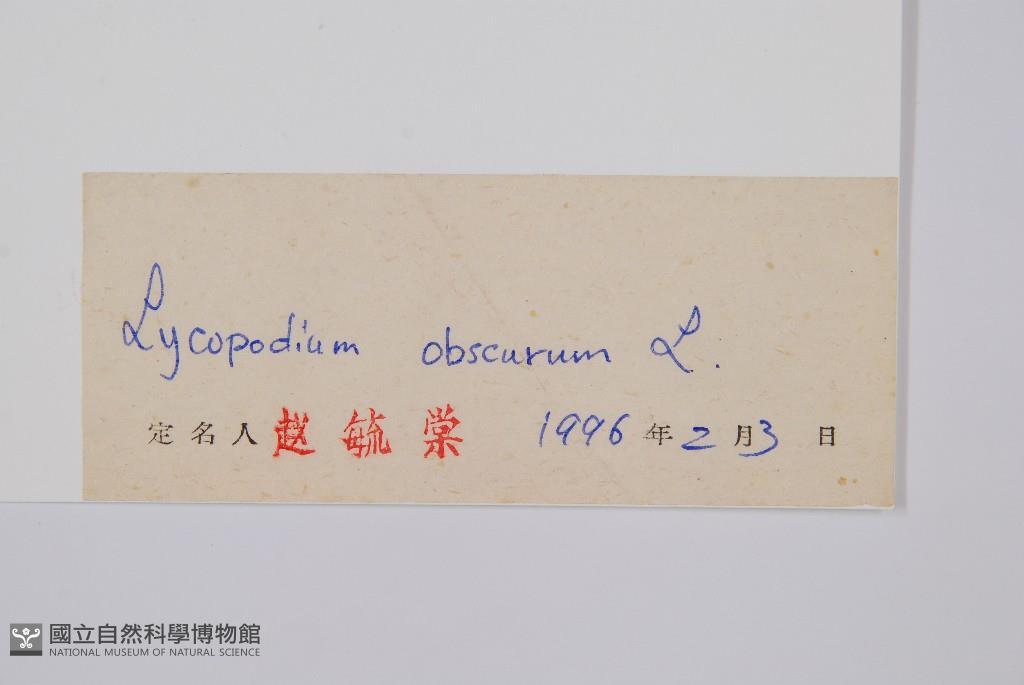 Lycopodium obscurum L.
定名人 赵毓棠 1996年2月3日
國立自然科學博物館
NATIONAL MUSEUM OF NATURAL SCIENCE